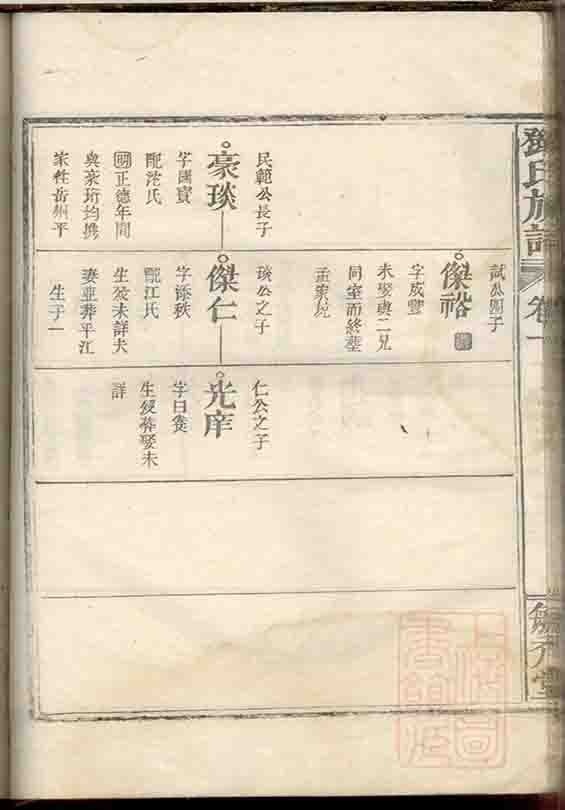 鄧氏族譜
卷一
民範公長子
豪琰
字國寶
配沈氏
明正德年間
與豪珩均携
家牲岳州平
試公四子
傑裕
字成豐
未娶與二兄
同室而終塋
琰公之子
傑仁
字添秩
配江氏
生歿未詳夫
妻並葬平江
生子一
仁公之子
光庠
生歿葬娶未
詳